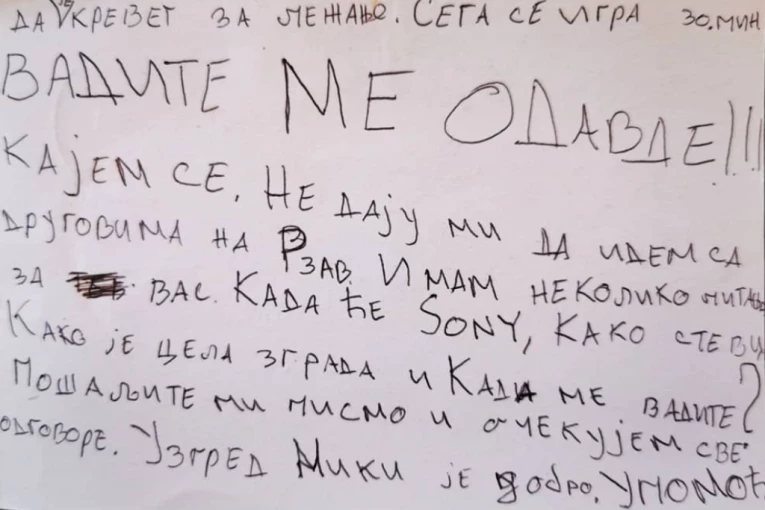 ДА КРЕВЕТ ЗА ЛЕЖАЊЕ. СЕГА СЕ ИГРА 30. МИН
ВАДИТЕ МЕ ОДАВДЕ!!!
КАЈЕМ СЕ. НЕ ДАЈУ МИ ДА ИДЕМ СА
ДРУГОВИМА НА РЗАВ. ИМАМ НЕКОЛИКО ПИТАЊ
ЗА ВАС. КАДА ЋЕ SONY, КАКО СТЕ ВИ,
КАКО ЈЕ ЦЕЛА ЗГРАДА И КАДА МЕ ВАДИТЕ?
ПОШАЉИТЕ МИ ПИСМО И ОЧЕКУЈЕМ СВЕ
ОДГОВОРЕ. УЗГРЕД МИКИ ЈЕ ДОБРО. УПОМОЋ